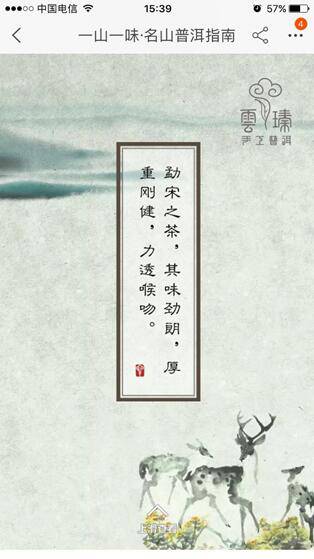 中国电信
15:39
57%
一山一味·名山普洱指南
4
雲瑧
勐宋之茶，其味劲朗，厚
重刚健，力透喉吻。